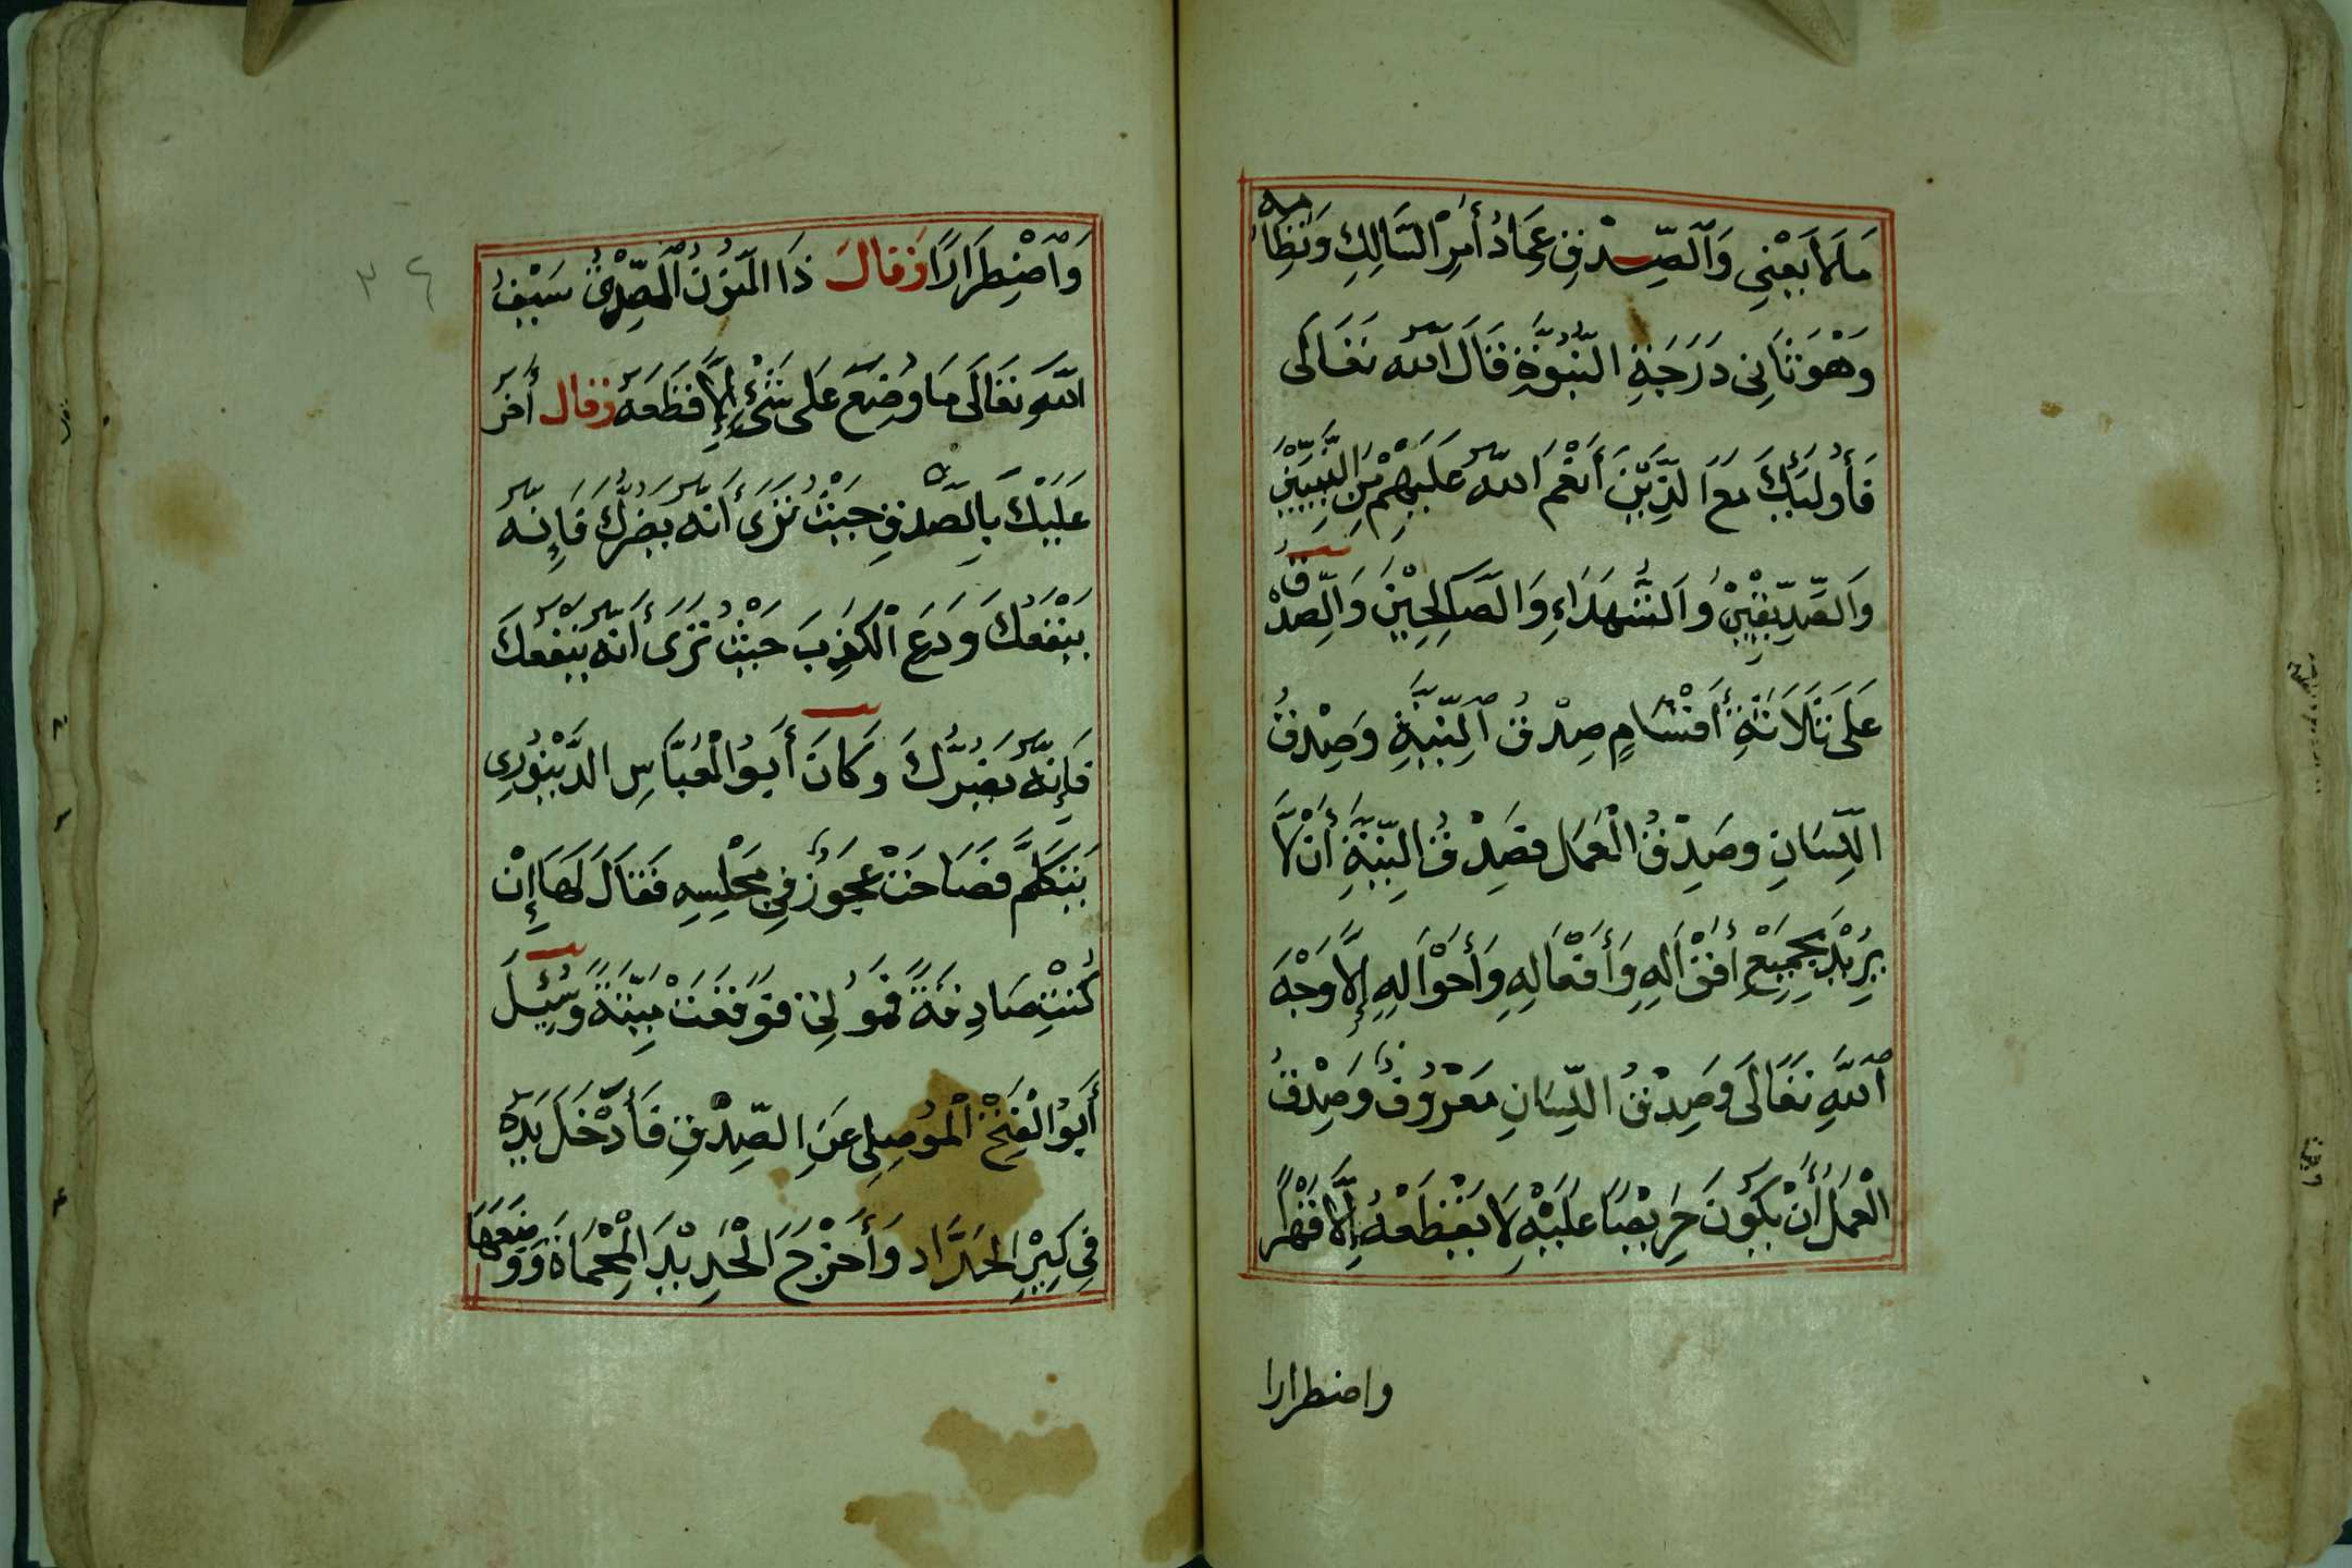 مَالَا يَعْنِي وَالصِّدْقِ عِمَادُ أَمْرِ السَّالِكِ وَنِظَامِهِ
وَهْوَ ثَانِي دَرَجَةِ النُّبُوَّةِ قَالَ اللّٰه تَعَالَى
فَأُولَئِكَ مَعَ الَّذِيْنَ أَنْعَمَ اللّٰهُ عَلَيْهِمْ مِنَ النَّبِيِّيْنَ
وَالصِّدِّيقِيْنَ وَالشُّهَدَاءِ وَالصَّالِحِيْنَ وَالصِّدْقُ
عَلَى ثَلَاثَةِ أَقْسَامٍ صِدْقُ النِّيَّةِ وَصِدْقُ
اللِّسَانِ وَصِدْقُ الْعَمَل فَصِدْقُ النِّيَّةِ أَنْ لَا
يُرِيْدَ بِجَمِيْعِ أَقْوَالِهِ وَأَفْعَالِهِ وَأَحْوَالِهِ إِلَّا وَجْهَ
اللّٰهِ تَعَالَى وَصِدْقُ اللِّسَانِ مَعْرُوْفٌ وَصِدْقُ
الْعَمَلُ أَنْ يَكُوْنَ حَرِيْصًا عَلَيْهِ لَا يَقْطَعُهُ إِلَّا قَهْرًا
واضطرارا
٣٤
وَاضْطِرَارًا وَقَالَ ذَا النُّوْنُ الْمِصْرِيُّ الصِّدْقُ سَيْفُ
اللّٰهِ تَعَالَى مَا وُضِعَ عَلَى شَيْءٍ إِلَّا قَطَعَهُ وَقَال أَخَرُ
عَلَيْكَ بِالصِّدْقِ حَيْثُ تَرَى أَنَّهُ يَضُرُّكَ فَإِنَّهُ
يَنْفَعُكَ وَدَعِ الْكَذِبَ حَيْثُ تَرَى أَنَّهُ يَنْفَعُكَ
فَإِنَّهُ يَضُرُّكَ وَكَانَ أَبُو الْعَبَّاسِ الدَّيْنَوَرِي
يَتَكَلَّمُ فَصَاحَتْ عَجُوْزٌ فِي مَجْلِسِهِ فَقَالَ لَهَا إِنْ
كُنْتِ صَادِقَةً فَمُوْتِي فَوَقَعَتْ مَيِّتَةً وَسُئِلَ
أَبُو الْفَتْحِ الْمَوْصِلِي عَنِ الصِّدْقِ فَأَدْخَلَ يَدَهُ
فِي كِيْرِ الْحَدَّادِ وَأَخْرَجَ الْحَدِيْدَ الْمُحْمَاةَ وَوَضَعَهَا